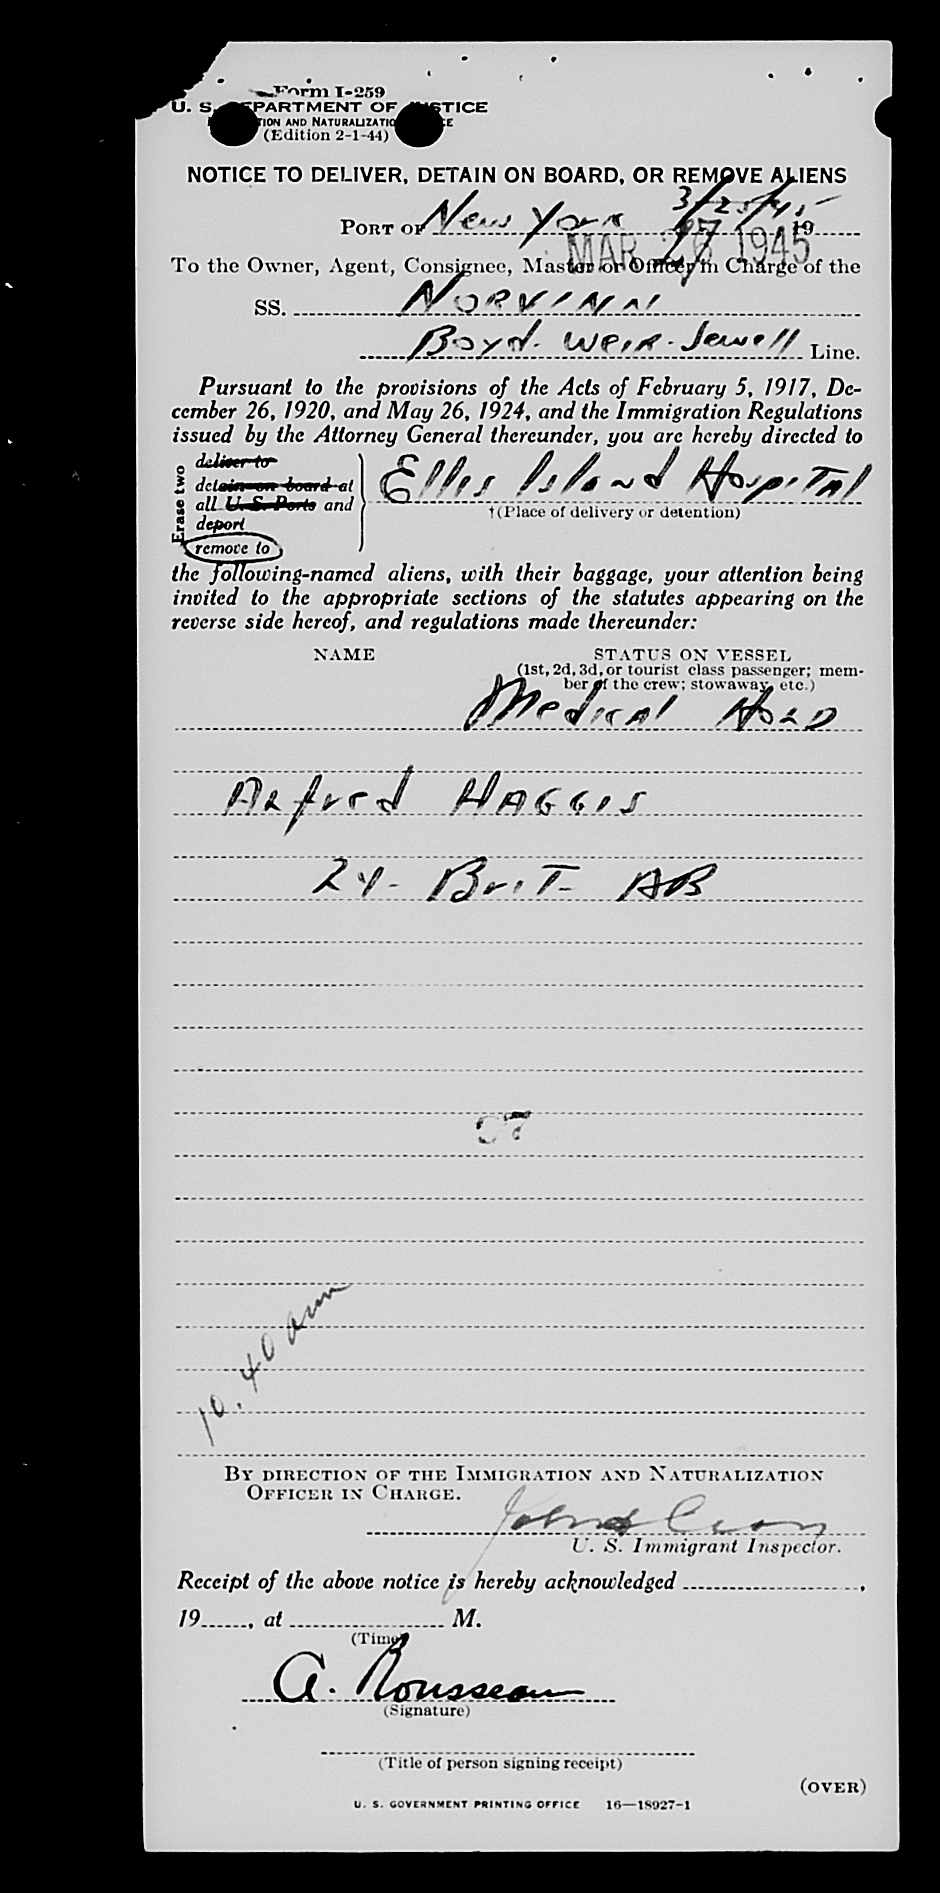 Form I-259
U. S. DEPARTMENT OF JUSTICE
IMMIGRATION AND NATURALIZATION SERVICE
(Edition 2-1-44)
NOTICE TO DELIVER, DETAIN ON BOARD, OR REMOVE ALIENS
PORT OF New York 3/25/45 19
MAR 26 1945
To the Owner, Agent, Consignee, Master or Officer in Charge of the
SS. NORVINN
Boyd-Weir-Sewell Line.
Pursuant to the provisions of the Acts of February 5, 1917, De-
cember 26, 1920, and May 26, 1924, and the Immigration Regulations
issued by the Attorney General thereunder, you are hereby directed to
Erase two
deliver to
detain on board at
all U. S. Ports and
deport
remove to
Ellis Island Hospital
†(Place of delivery or detention)
the following-named aliens, with their baggage, your attention being
invited to the appropriate sections of the statutes appearing on the
reverse side hereof, and regulations made thereunder:
NAME STATUS ON VESSEL
(1st, 2d, 3d, or tourist class passenger; mem-
ber of the crew; stowaway, etc.)
Medical Hold
Alfred HAGGIS
24- Brit- AB
10.40 am
BY DIRECTION OF THE IMMIGRATION AND NATURALIZATION
OFFICER IN CHARGE.
U. S. Immigrant Inspector.
Receipt of the above notice is hereby acknowledged ,
19 , at M.
(Time)
A. Rousseau
(Signature)
(Title of person signing receipt)
(OVER)
U. S. GOVERNMENT PRINTING OFFICE 16—18927-1